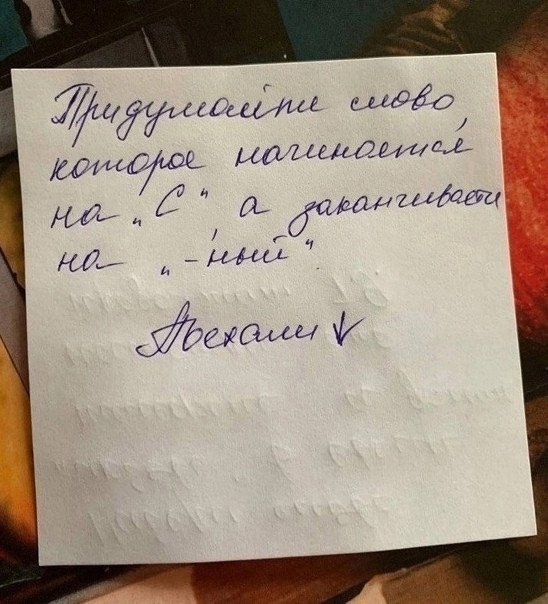 Придумайте слово,
которое начинается
на "С", а заканчивается
на "-ный".
Поехали ↓